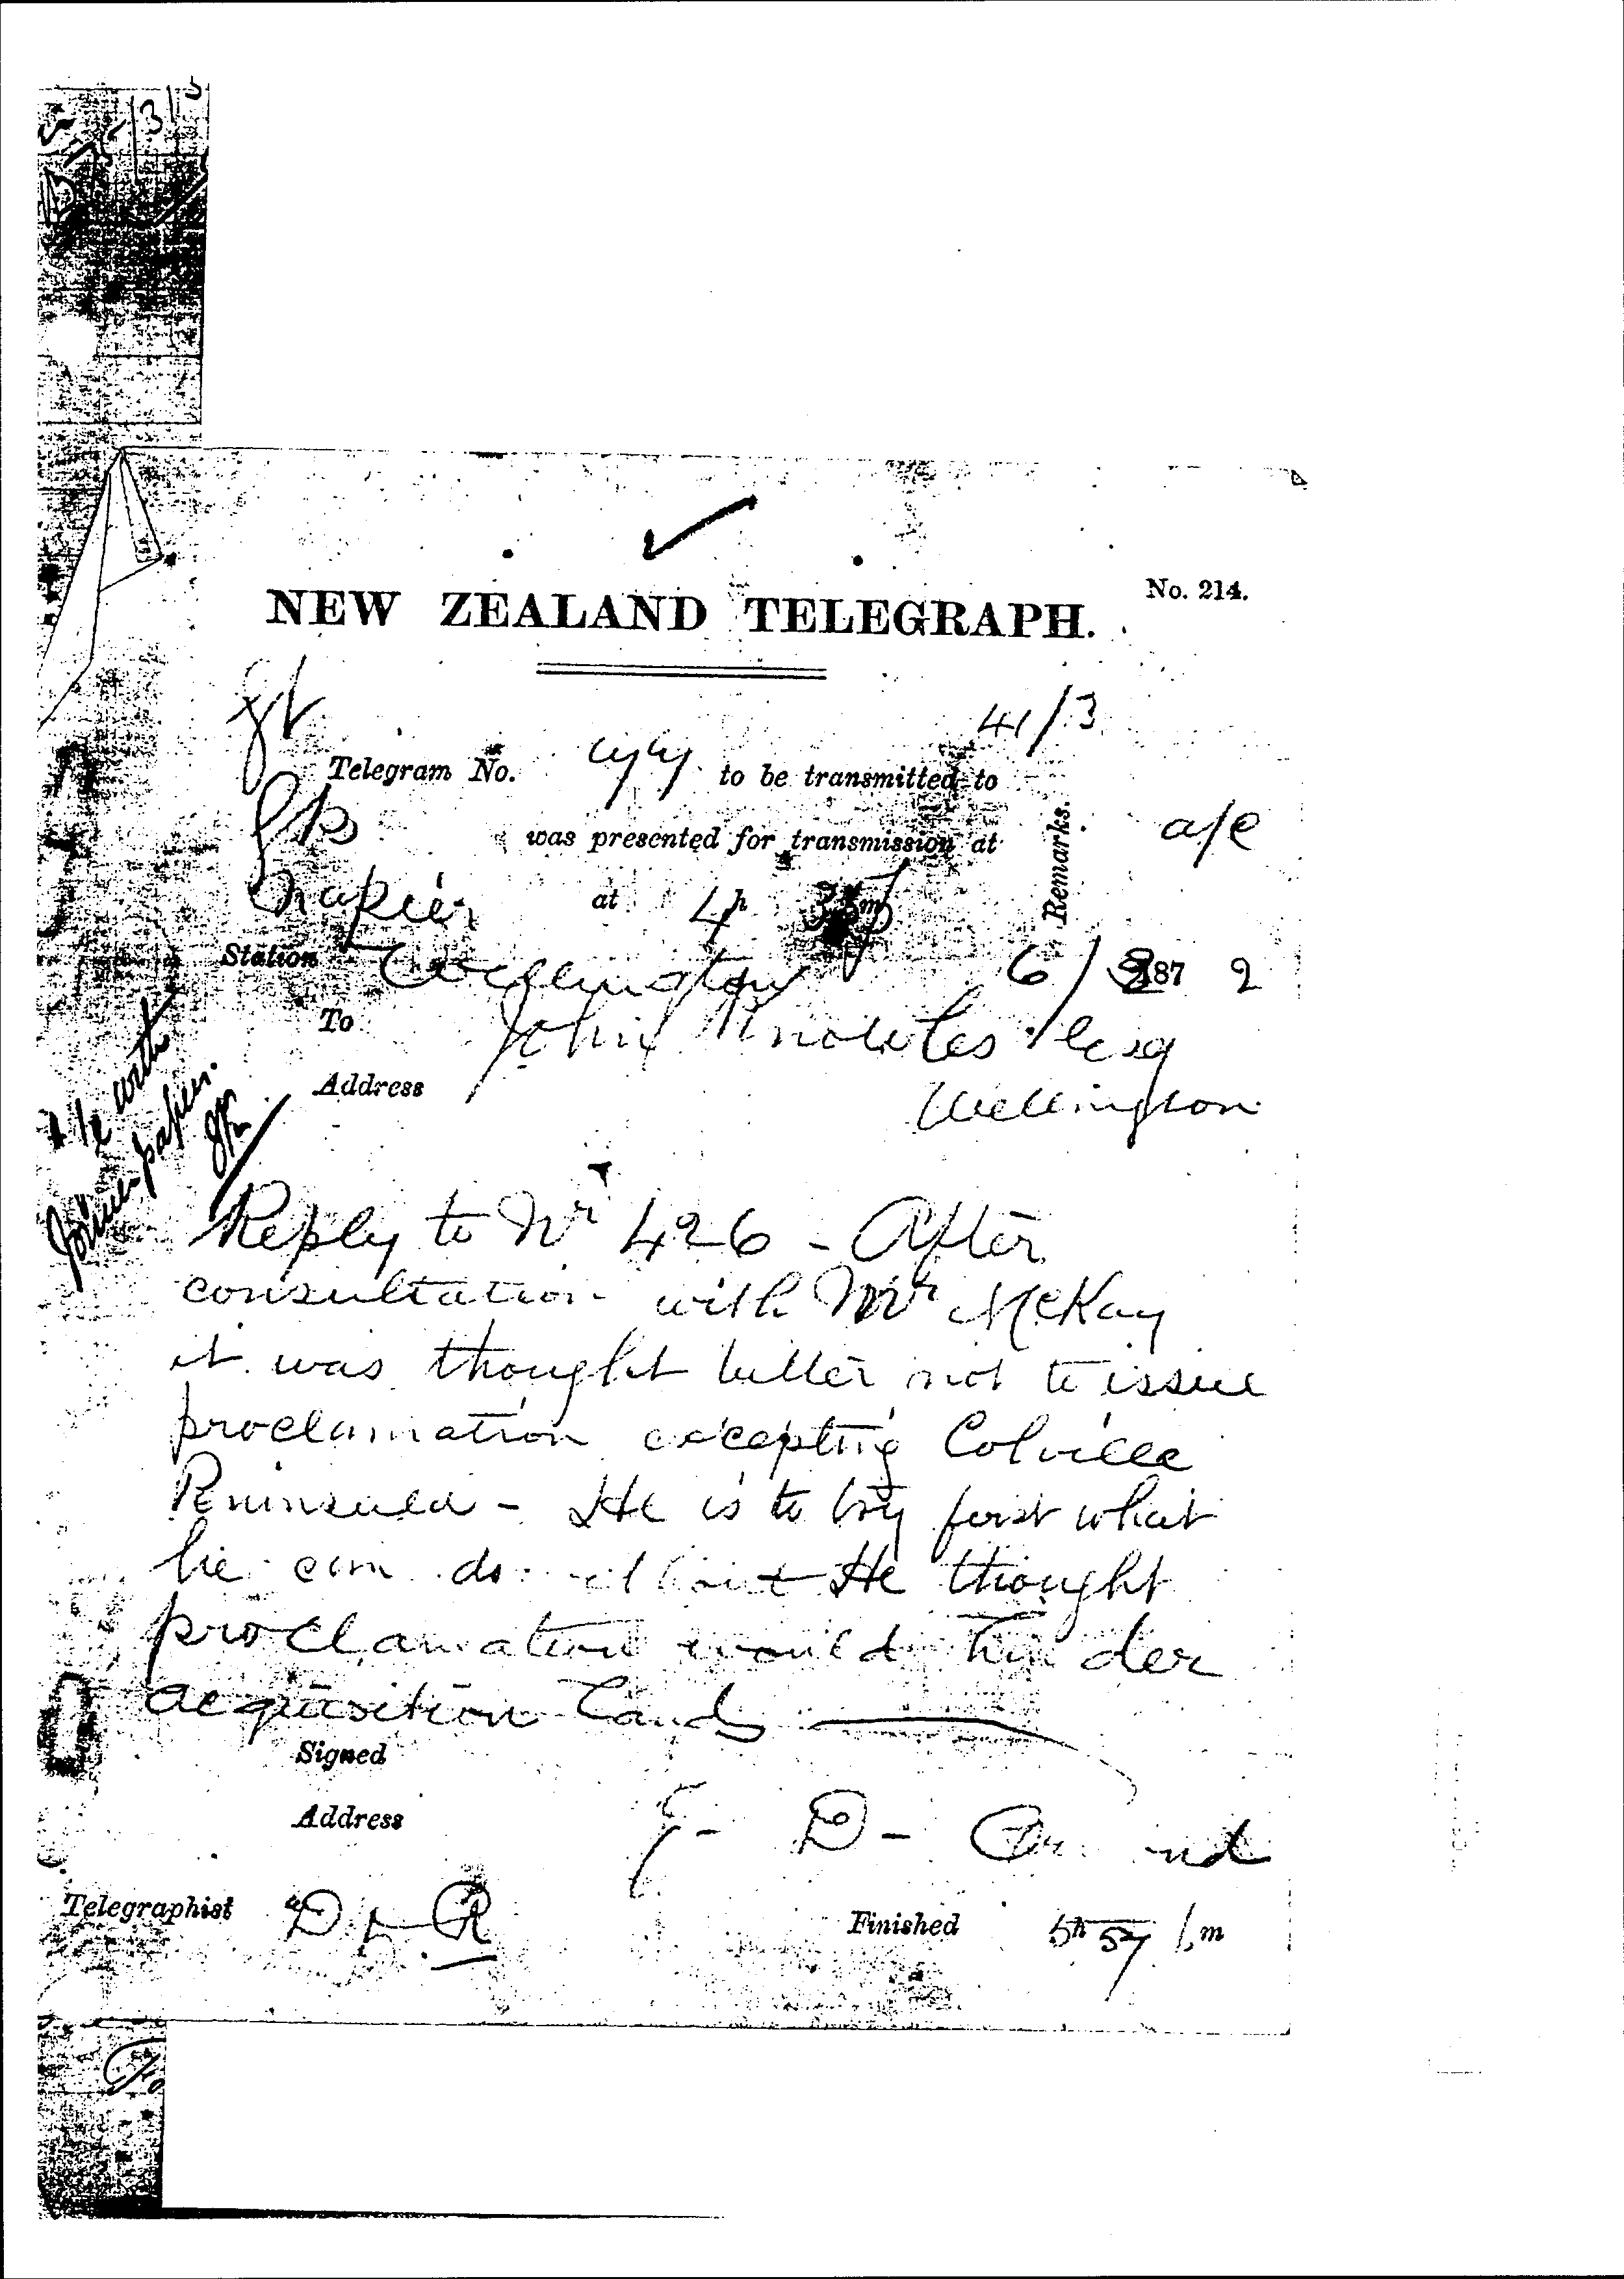 NEW ZEALAND TELEGRAPH.
No. 214.
41/3
Telegram No. to be transmitted to
was presented for transmission at
Remarks.
a/c
Napier at 4h m
Station Wellington 6/ 187 2
To John Knowles Esq
Address
Wellington
with
papers.
Reply to Nr 426 - After
consultation with Mr McKay
it was thought better not to issue
proclamation excepting Colville
Peninsula - He is to try first what
he can do without He thought
proclamation would hinder
acquisition Lands
Signed
Address J- D- Ormond
Telegraphist D R
Finished 5h 57 pm